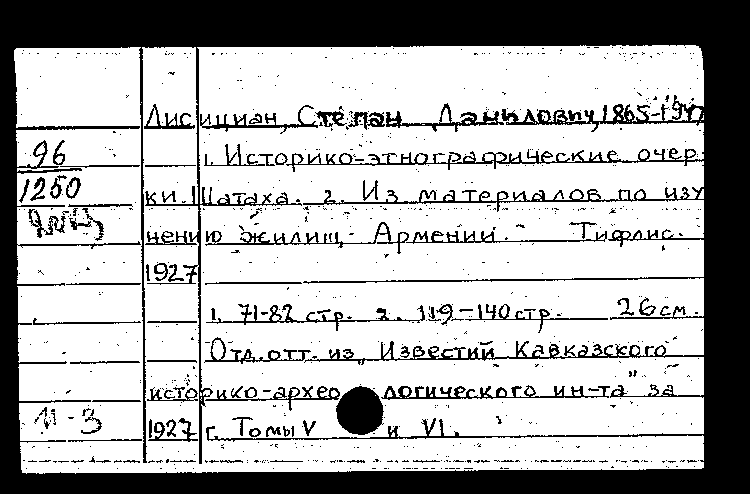 Лисициан, Степан Данилович, 1865-1947
96
1. Историко-этнографические очер-
1250
ки. Шатаха. 2. Из материалов по изу
чению жилищ Армении. Тифлис.
1927
1. 71-82 стр. 2. 119-140 стр. 26 см.
Отд. отт. из „Известий Кавказского
историко-археологического ин-та" за
11-3
1927 г. Томы V и VI.